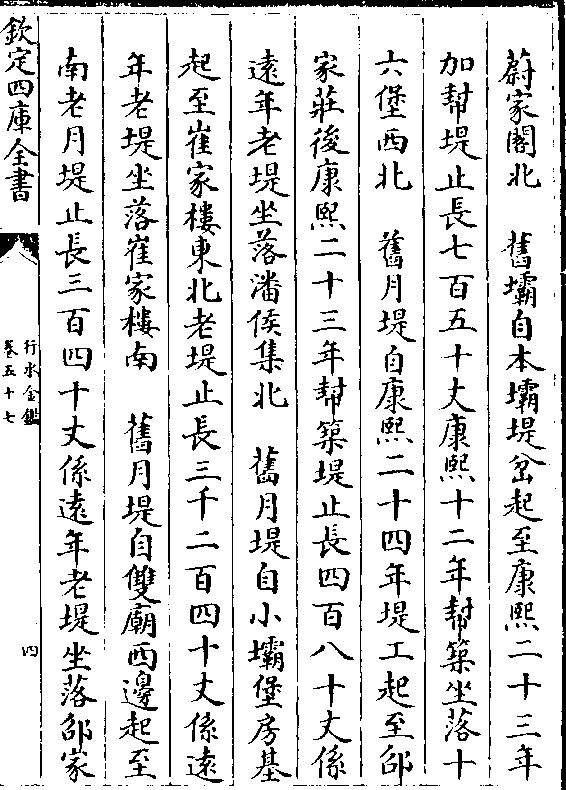 蔚家閣北　舊壩自本壩堤岔起至康熙二十三年
加幫堤止長七百五十丈康熙十二年幫築坐落十
六堡西北　舊月堤自康熙二十四年堤工起至邰
家莊後康熙二十三年幫築堤止長四百八十丈係
遠年老堤坐落潘侯集北　舊月堤自小壩堡房基
起至崔家樓東北老堤止長三千二百四十丈係遠
年老堤坐落崔家樓南　舊月堤自雙廟西邊起至
南老月堤止長三百四十丈係遠年老堤坐落邰家
欽定四庫全書
行水金鑑
卷五十七
四